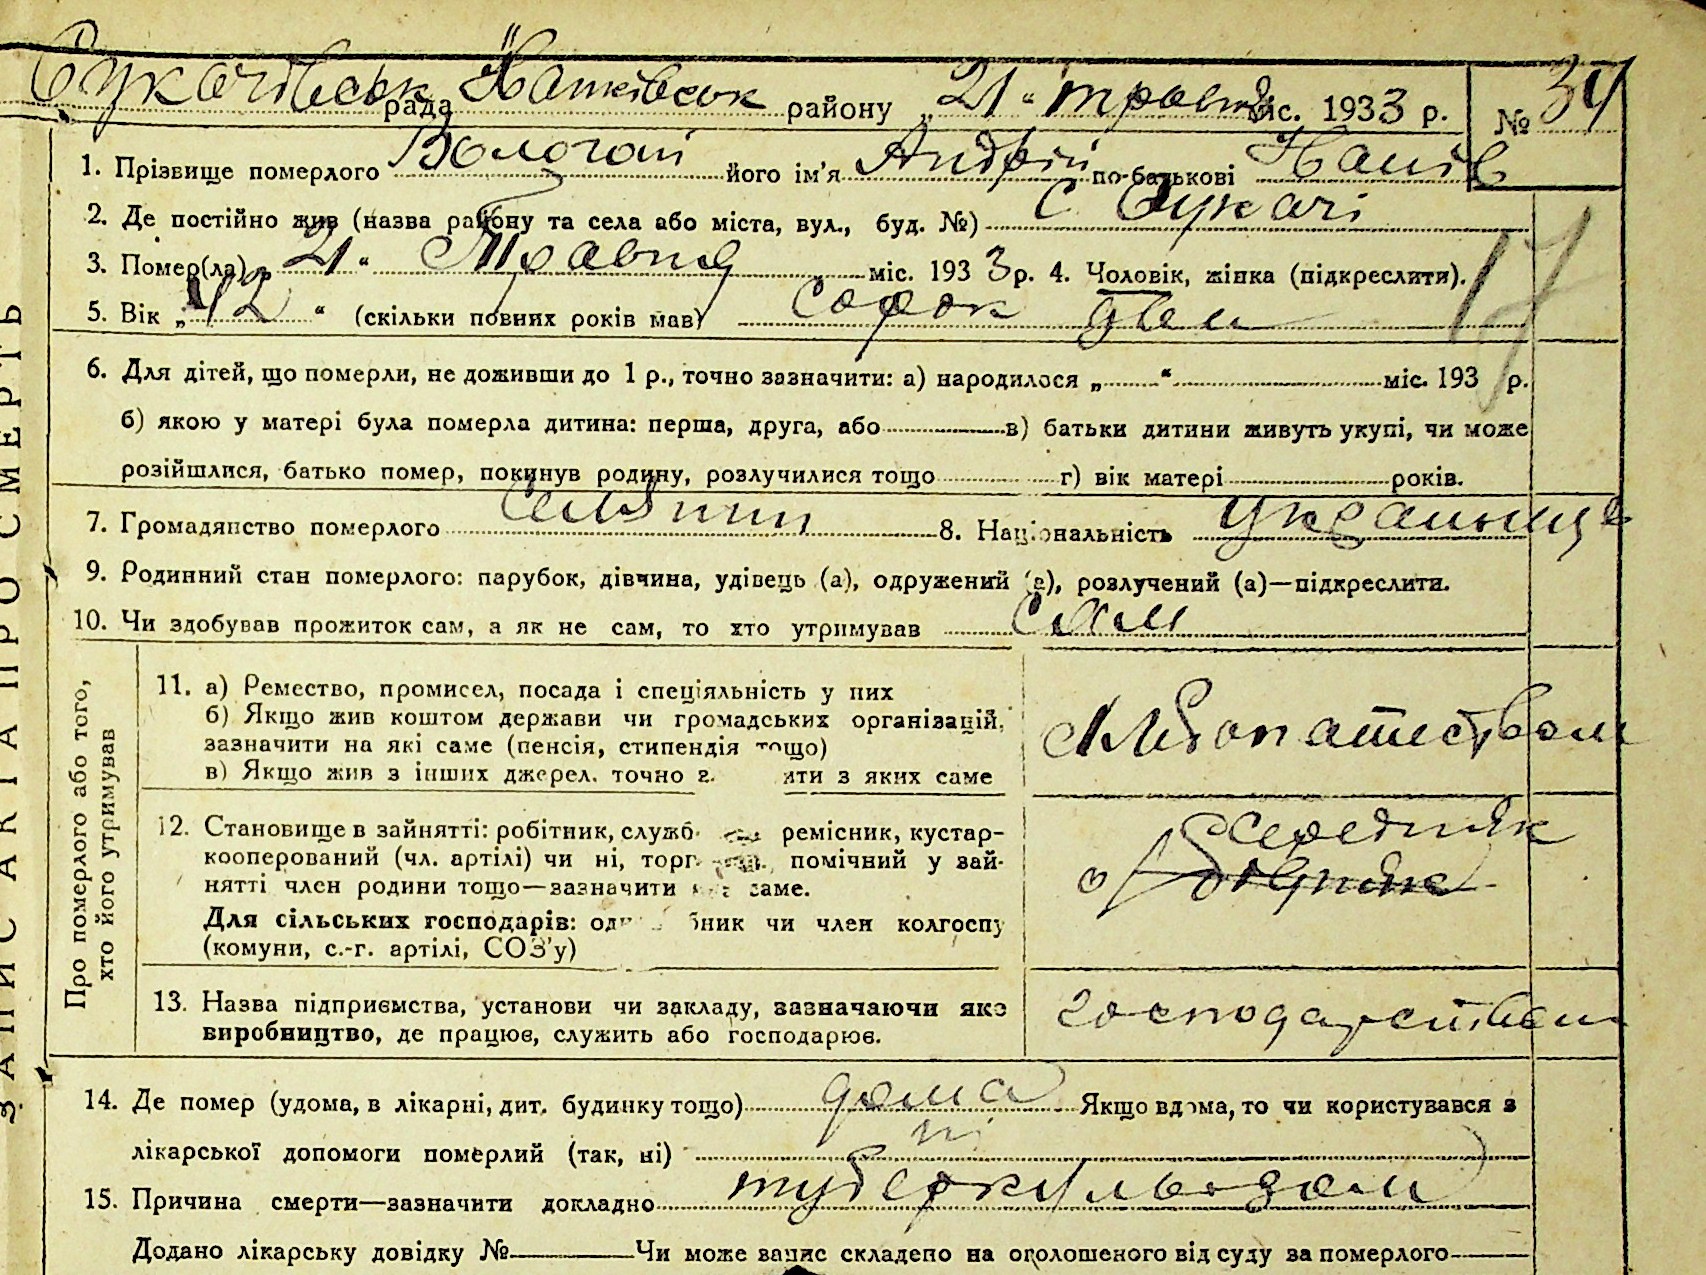 Сукачівськ рада Іванківськ району „21“ травня міс. 1933 р. № 34
1. Прізвище померлого його ім'я Андрій по-батькові
2. Де постійно жив (назва району та села або міста, вул., буд. №) с Сукачі
3. Помер(ла) „21“ Травня міс. 1933 р. 4. Чоловік, жінка (підкреслити).
17
5. Вік „42“ (скільки повних років мав) сорок два
6. Для дітей, що померли, не доживши до 1 р., точно зазначити: а) народилося „ “ міс. 193 р.
б) якою у матері була померла дитина: перша, друга, або в) батьки дитини живуть укупі, чи може
розійшлися, батько помер, покинув родину, розлучилися тощо г) вік матері років.
7. Громадянство померлого 8. Національність українець
9. Родинний стан померлого: парубок, дівчина, удівець (а), одружений (а), розлучений (а)—підкреслити.
10. Чи здобував прожиток сам, а як не сам, то хто утримував сам
ЗАПИС АКТА ПРО СМЕРТЬ
Про померлого або того,
хто його утримував
11. а) Ремество, промисел, посада і спеціяльність у них
б) Якщо жив коштом держави чи громадських організацій,
зазначити на які саме (пенсія, стипендія тощо)
в) Якщо жив з інших джерел, точно з ити з яких саме
хлібопашеством
12. Становище в зайнятті: робітник, служб ремісник, кустар-
кооперований (чл. артілі) чи ні, торг помічний у зай-
нятті член родини тощо—зазначити саме.
Для сільських господарів: од бник чи член колгоспу
(комуни, с.-г. артілі, СОЗ'у)
середняк
13. Назва підприємства, установи чи закладу, зазначаючи яке
виробництво, де працює, служить або господарює.
14. Де помер (удома, в лікарні, дит. будинку тощо) дома Якщо вдома, то чи користувався з
лікарської допомоги померлий (так, ні) ні
15. Причина смерти—зазначити докладно туберкульозом
Додано лікарську довідку № Чи може запис складено на оголошеного від суду за померлого